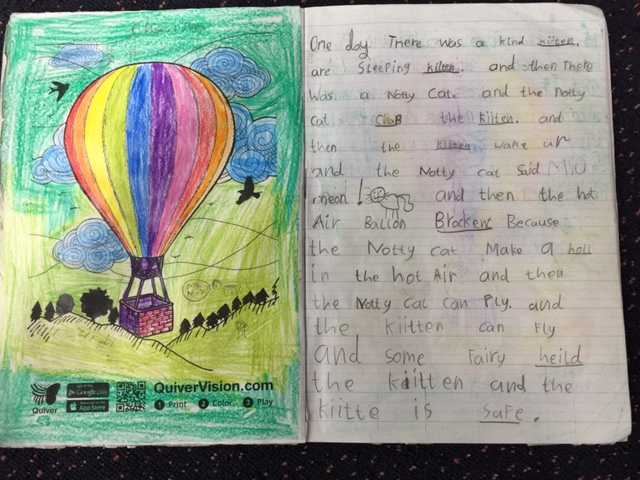 One day There was a kind kitten.
are Sleeping kitten. and then There
was a Notty cat. and the Notty
cat ClaB the kitten. and
then the kitten wake up
and the Notty cat Said MIO
meon! and then the hot
Air Ballon Blocken Because
the Notty cat Make a holl
in the hot Air and then
the Notty cat can Fly. and
the kiitten can Fly
and some fairy heild
the kiitten and the
kiitte is safe.
Quiver
App Store
Google Play
QuiverVision.com
1 Print 2 Color 3 Play